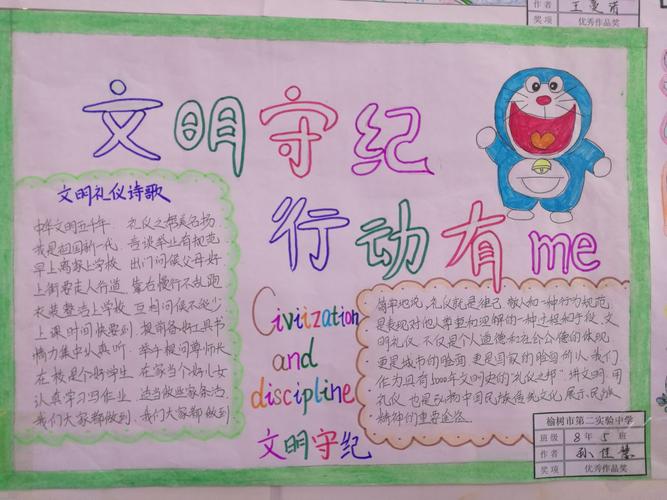 作者 王曼
奖项 优秀作品奖
文明守纪
行动有me
文明礼仪诗歌
中华文明五千年 礼仪之邦美名扬
我是祖国新一代 言谈举止有规范
早上离家上学校 出门问候父母好
上街要走人行道 靠右慢行不乱跑
衣装整洁上学校 互相问候不能少
上课时间快要到 提前备好工具书
精力集中认真听 举手提问尊师长
在校是个好学生 在家当个好儿女
认真学习写作业 适当做些家务活
我们大家都做到 我们大家都做到
Civiization
and
discipline
文明守纪
简单地说,礼仪就是律己、敬人的一种行为规范,
是表现对他人尊重和理解的一种过程和手段,文
明礼仪,不仅是个人道德和社会公德的体现
更是城市的脸面,更是国家的脸面所以我们
作为具有5000年文明史的"礼仪之邦",讲文明,用
礼仪,也是弘扬中国民族传统文化,展示民族
精神的重要途径
榆树市第二实验中学
班级 8年5班
作者 孙佳慧
奖项 优秀作品奖